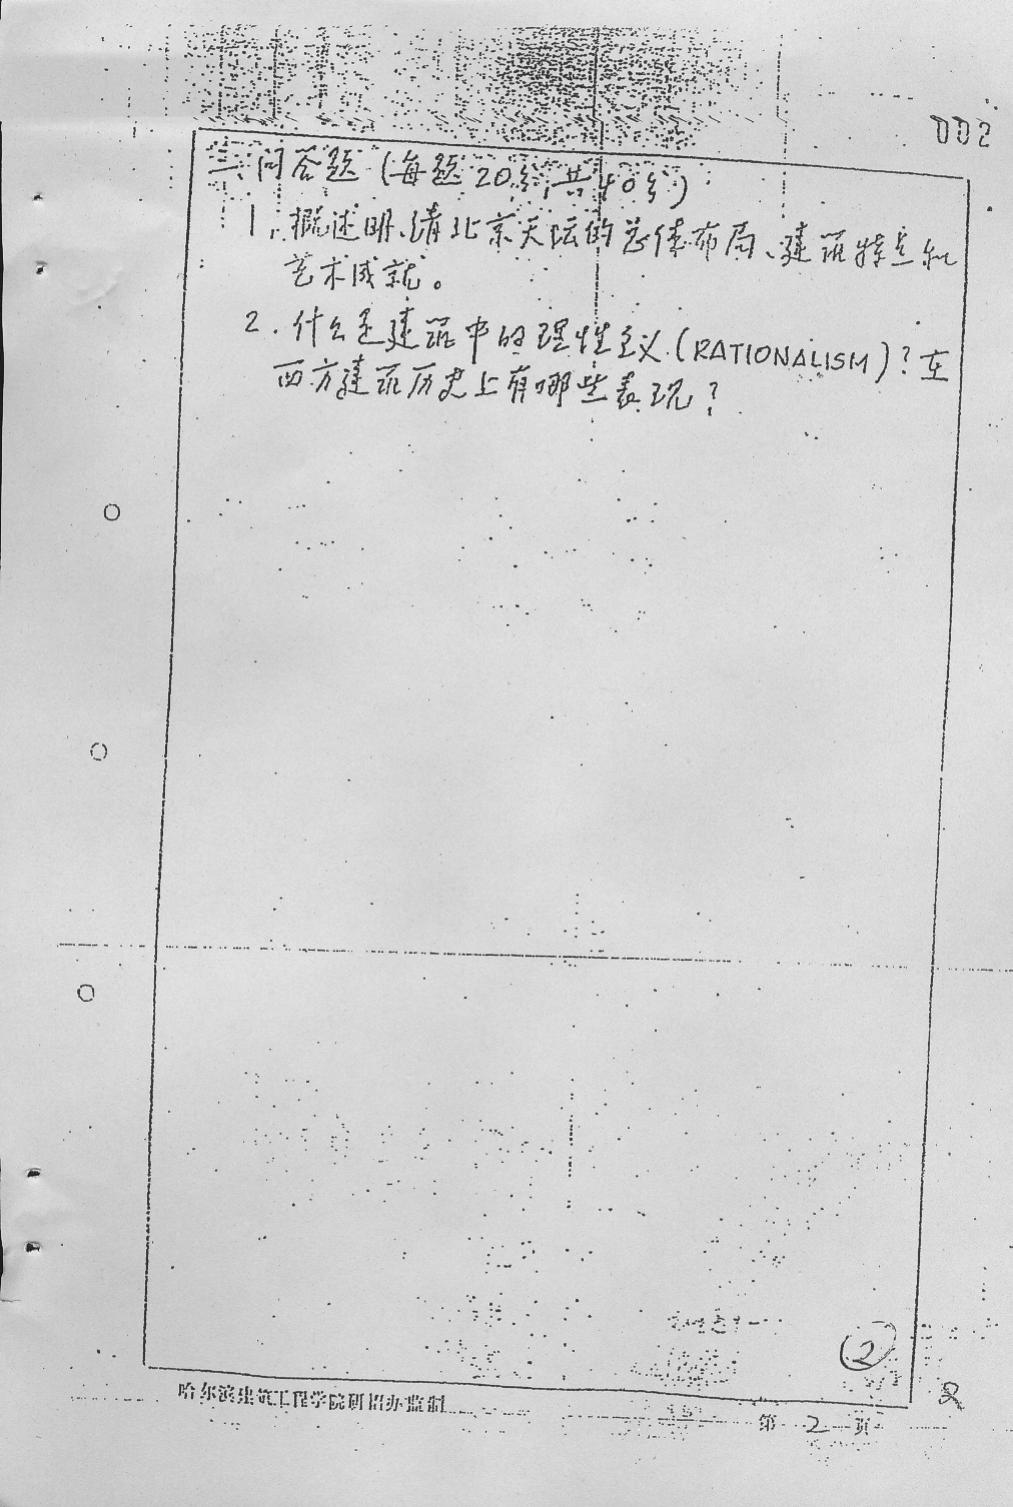 002
三、问答题(每题20分,共40分)
1. 概述明、清北京天坛的总体布局、建筑特点和
艺术成就。
2. 什么是建筑中的理性主义(RATIONALISM)?在
西方建筑历史上有哪些表现?
②
2
哈尔滨建筑工程学院研招办监制
第 2 页